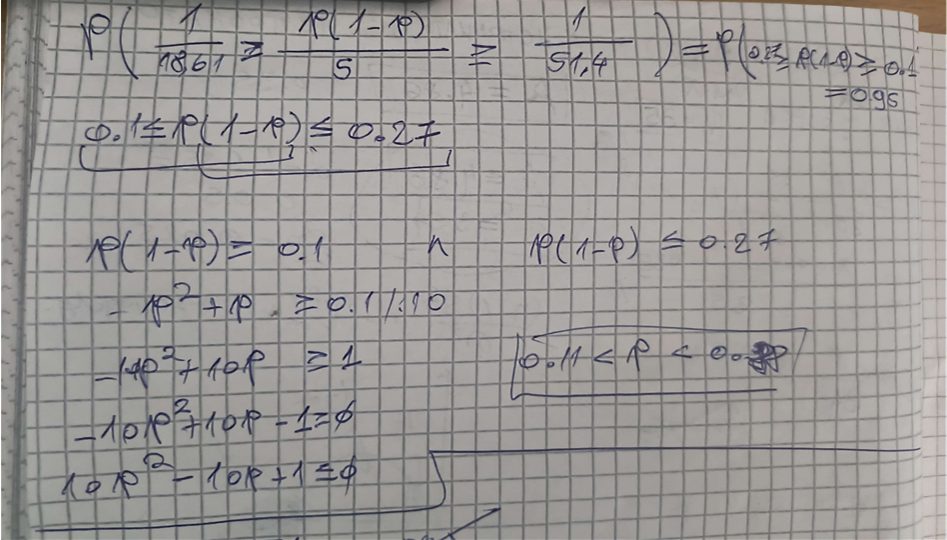 P( 1/18,61 ≥ p(1-p)/5 ≥ 1/51,4 ) = P(0.27 ≥ p(1-p) ≥ 0.1
= 0.95
0.1 ≤ p(1-p) ≤ 0.27
p(1-p) ≥ 0.1 n p(1-p) ≤ 0.27
- p² + p ≥ 0.1 /·10
-10p² + 10p ≥ 1 0.11 < p < 0.
-10p² + 10p - 1 ≥ 0
10p² - 10p + 1 ≤ 0